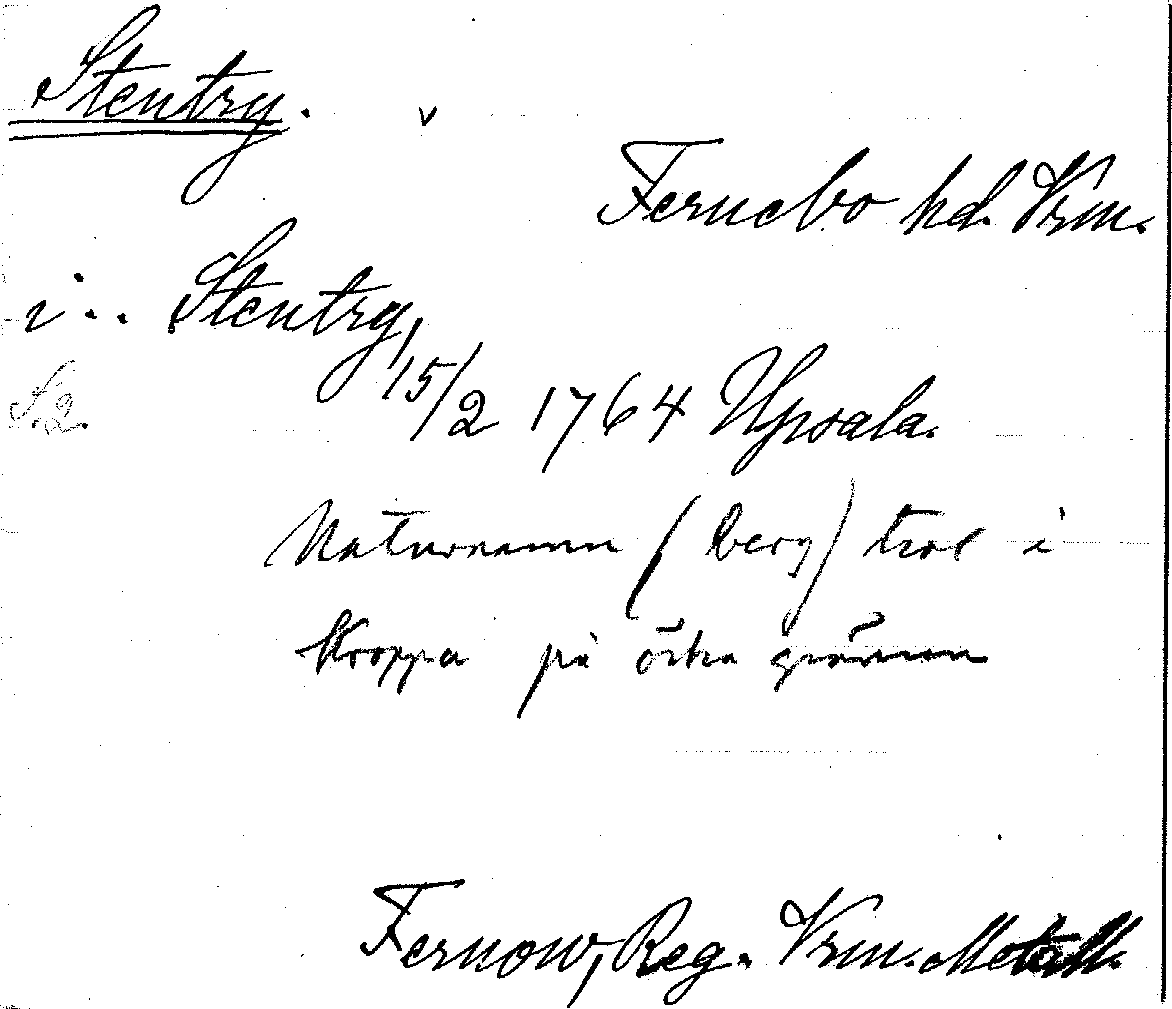 Stentry. v
Fernebo hd. Vrm.
i .. Stentry,
15/2 1764 Upsala.
S. 2.
Naturnamn (berg) trol i
Kroppa på östra gränsen
Fernow, Reg. Vrm. Metall.